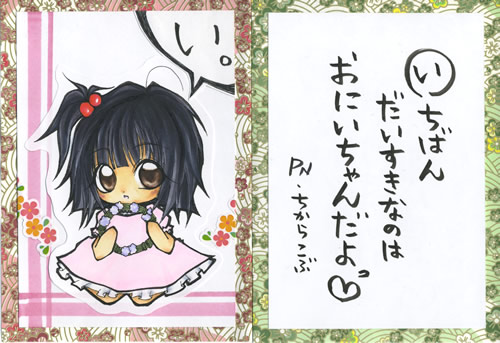 い。
いちばん
だいすきなのは
おにいちゃんだよ♡
PN.ちからこぶ